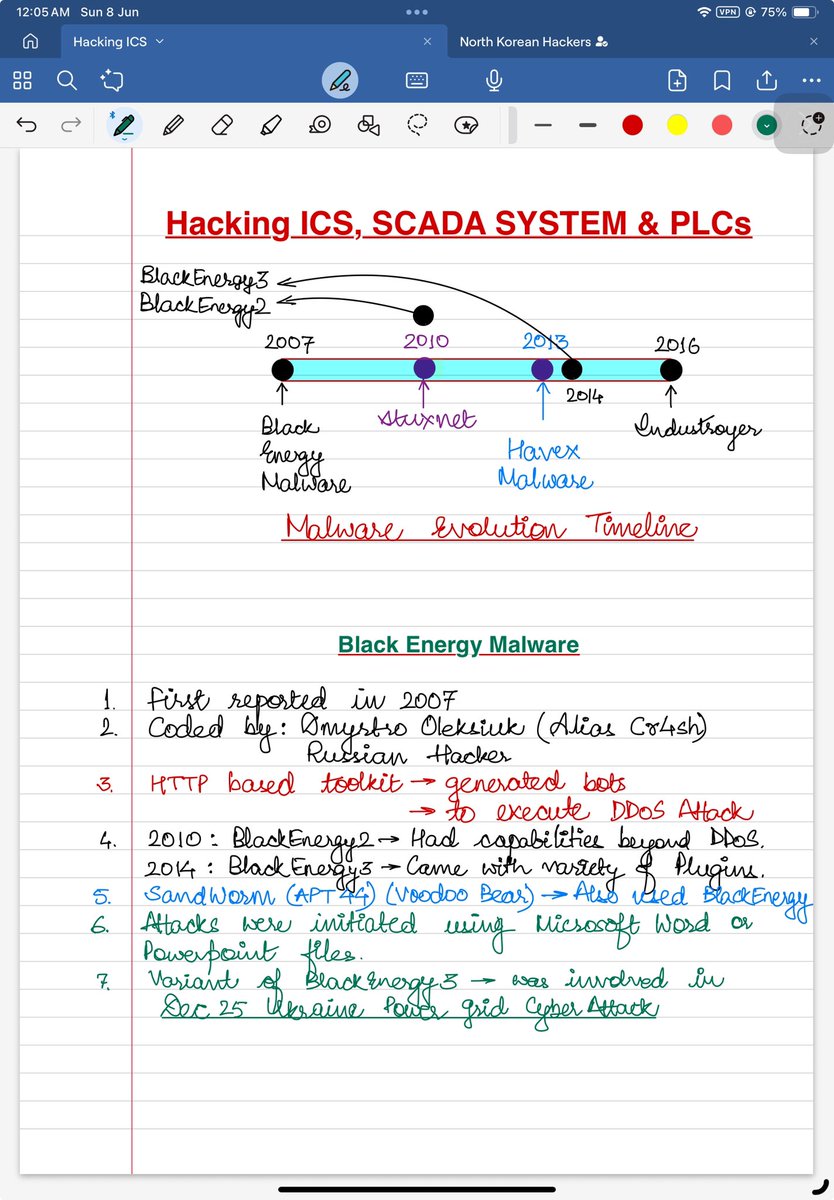 12:05 AM Sun 8 Jun
VPN 75%
Hacking ICS
North Korean Hackers
Hacking ICS, SCADA SYSTEM & PLCs
BlackEnergy3
BlackEnergy2
2007 2010 2013 2016
2014
Black Energy Malware
Stuxnet
Havex Malware
Industroyer
Malware Evolution Timeline
Black Energy Malware
1. First reported in 2007
2. Coded by: Dmystro Oleksiuk (Alias Cr4sh)
Russian Hacker
3. HTTP based toolkit → generated bots
→ to execute DDOS Attack
4. 2010 : BlackEnergy2 → Had capabilities beyond DDoS.
2014 : BlackEnergy3 → Came with variety of Plugins.
5. SandWorm (APT 44) (Voodoo Bear) → Also used BlackEnergy
6. Attacks were initiated using Microsoft Word or
Powerpoint files.
7. Variant of BlackEnergy3 → was involved in
Dec 25 Ukraine Power grid Cyber Attack